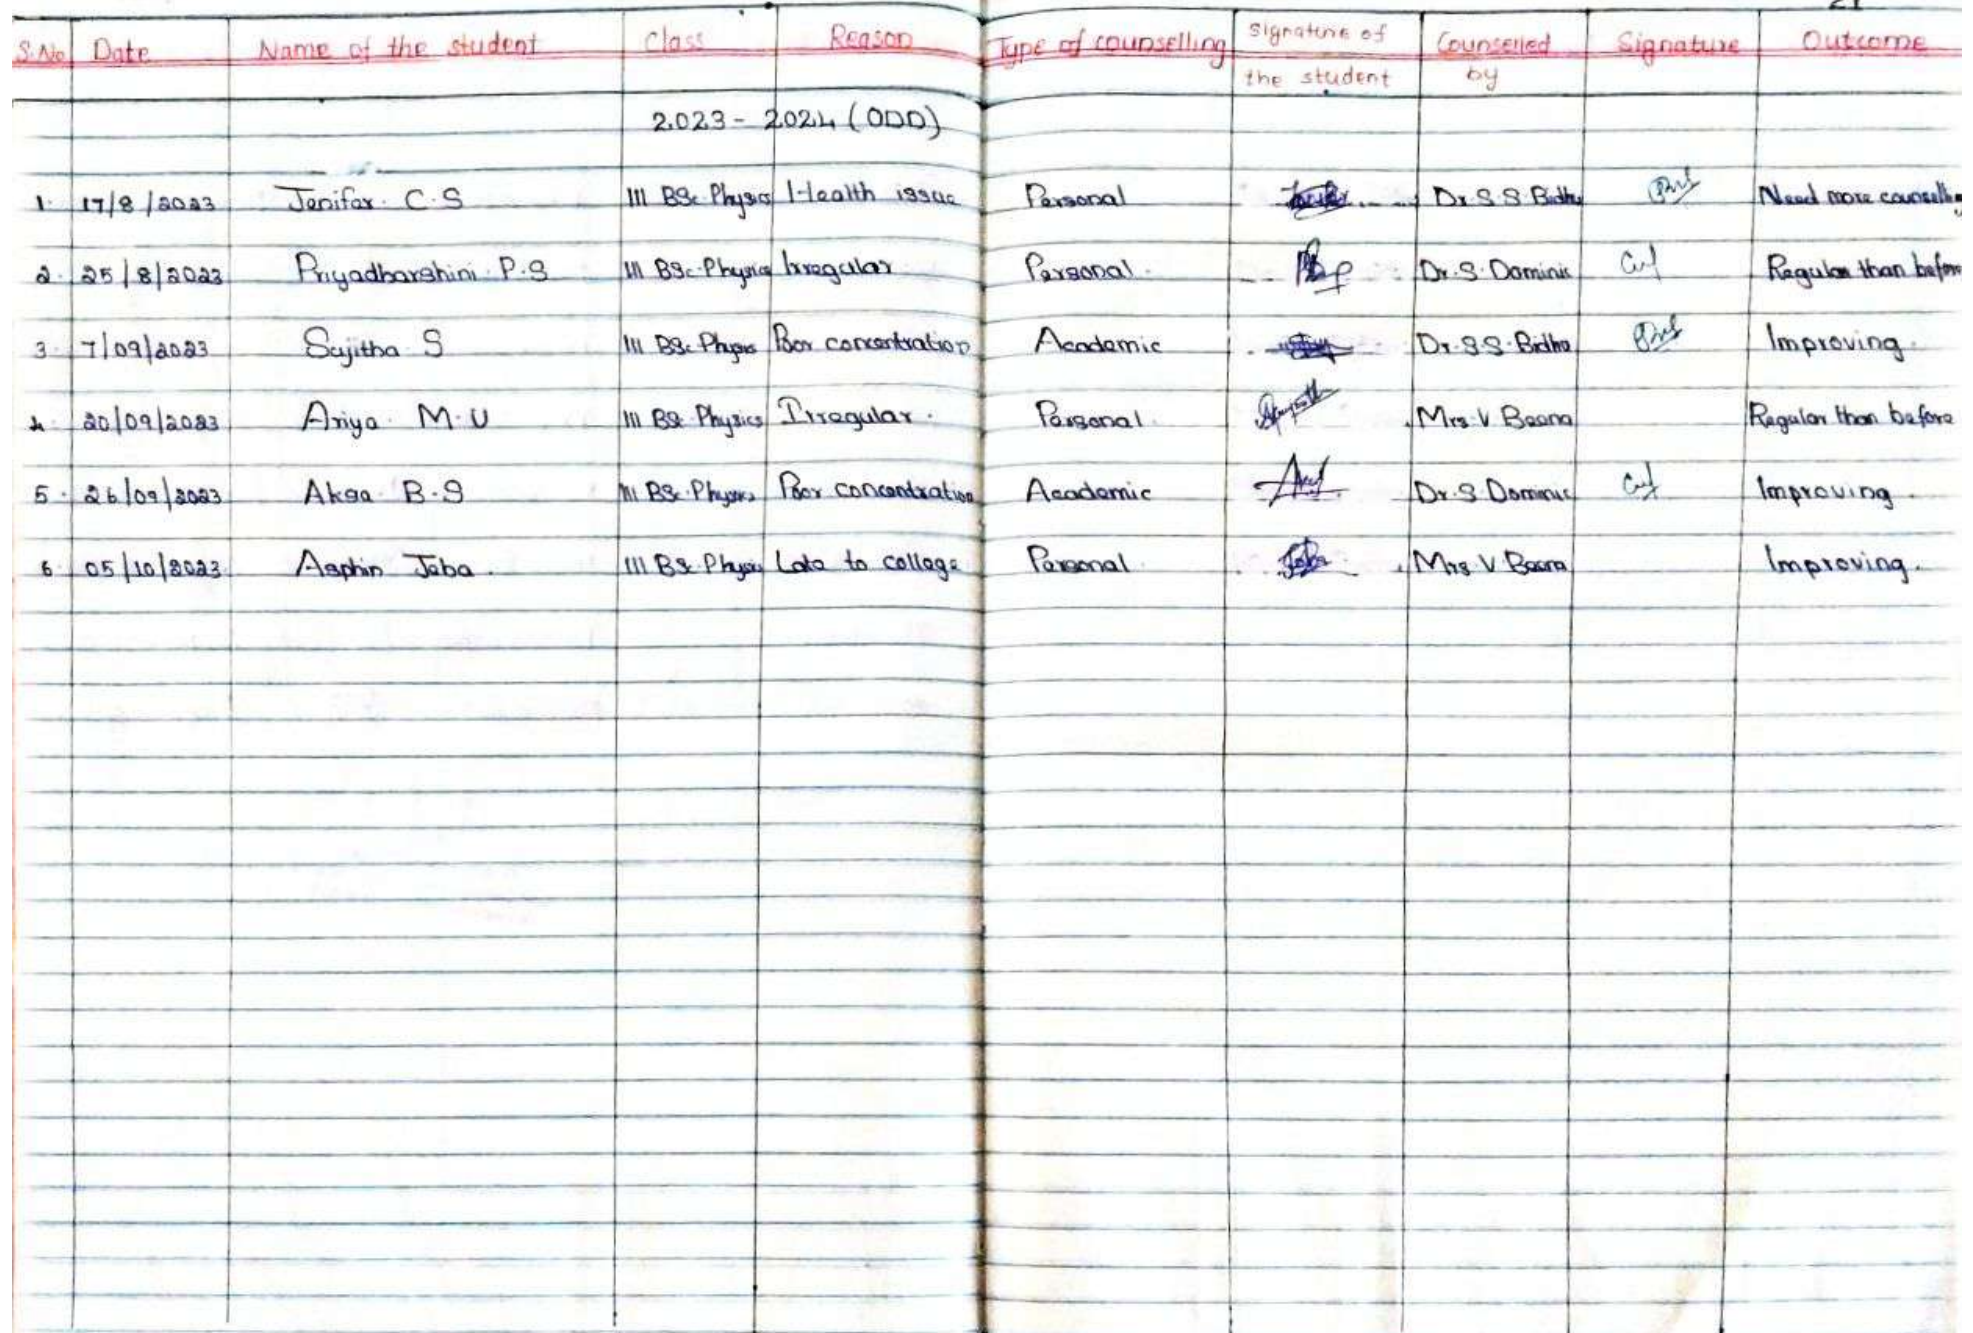 21
S.No Date Name of the student Class Reason Type of counselling Signature of the student Counselled by Signature Outcome
2023 - 2024 (ODD)
1. 17/8/2023 Jenifar. C.S III BSc Physics Health issue Personal Dr. S.S Bidhu Need more counselling
2. 25/8/2023 Priyadharshini. P.S III BSc Physics Irregular Personal. Dr. S. Dominic Regular than before
3. 7/09/2023 Sujitha S III BSc Physics Poor concentration Academic Dr. S.S. Bidhu Improving.
4. 20/09/2023 Ariya. M.U III BSc Physics Irregular. Personal. Mrs. V Beena Regular than before
5. 26/09/2023 Aksa B.S III BSc Physics Poor concentration Academic Dr. S Dominic Improving.
6. 05/10/2023 Asphin Jeba. III BSc Physics Late to college Personal. Jeba Mrs V Beena Improving.